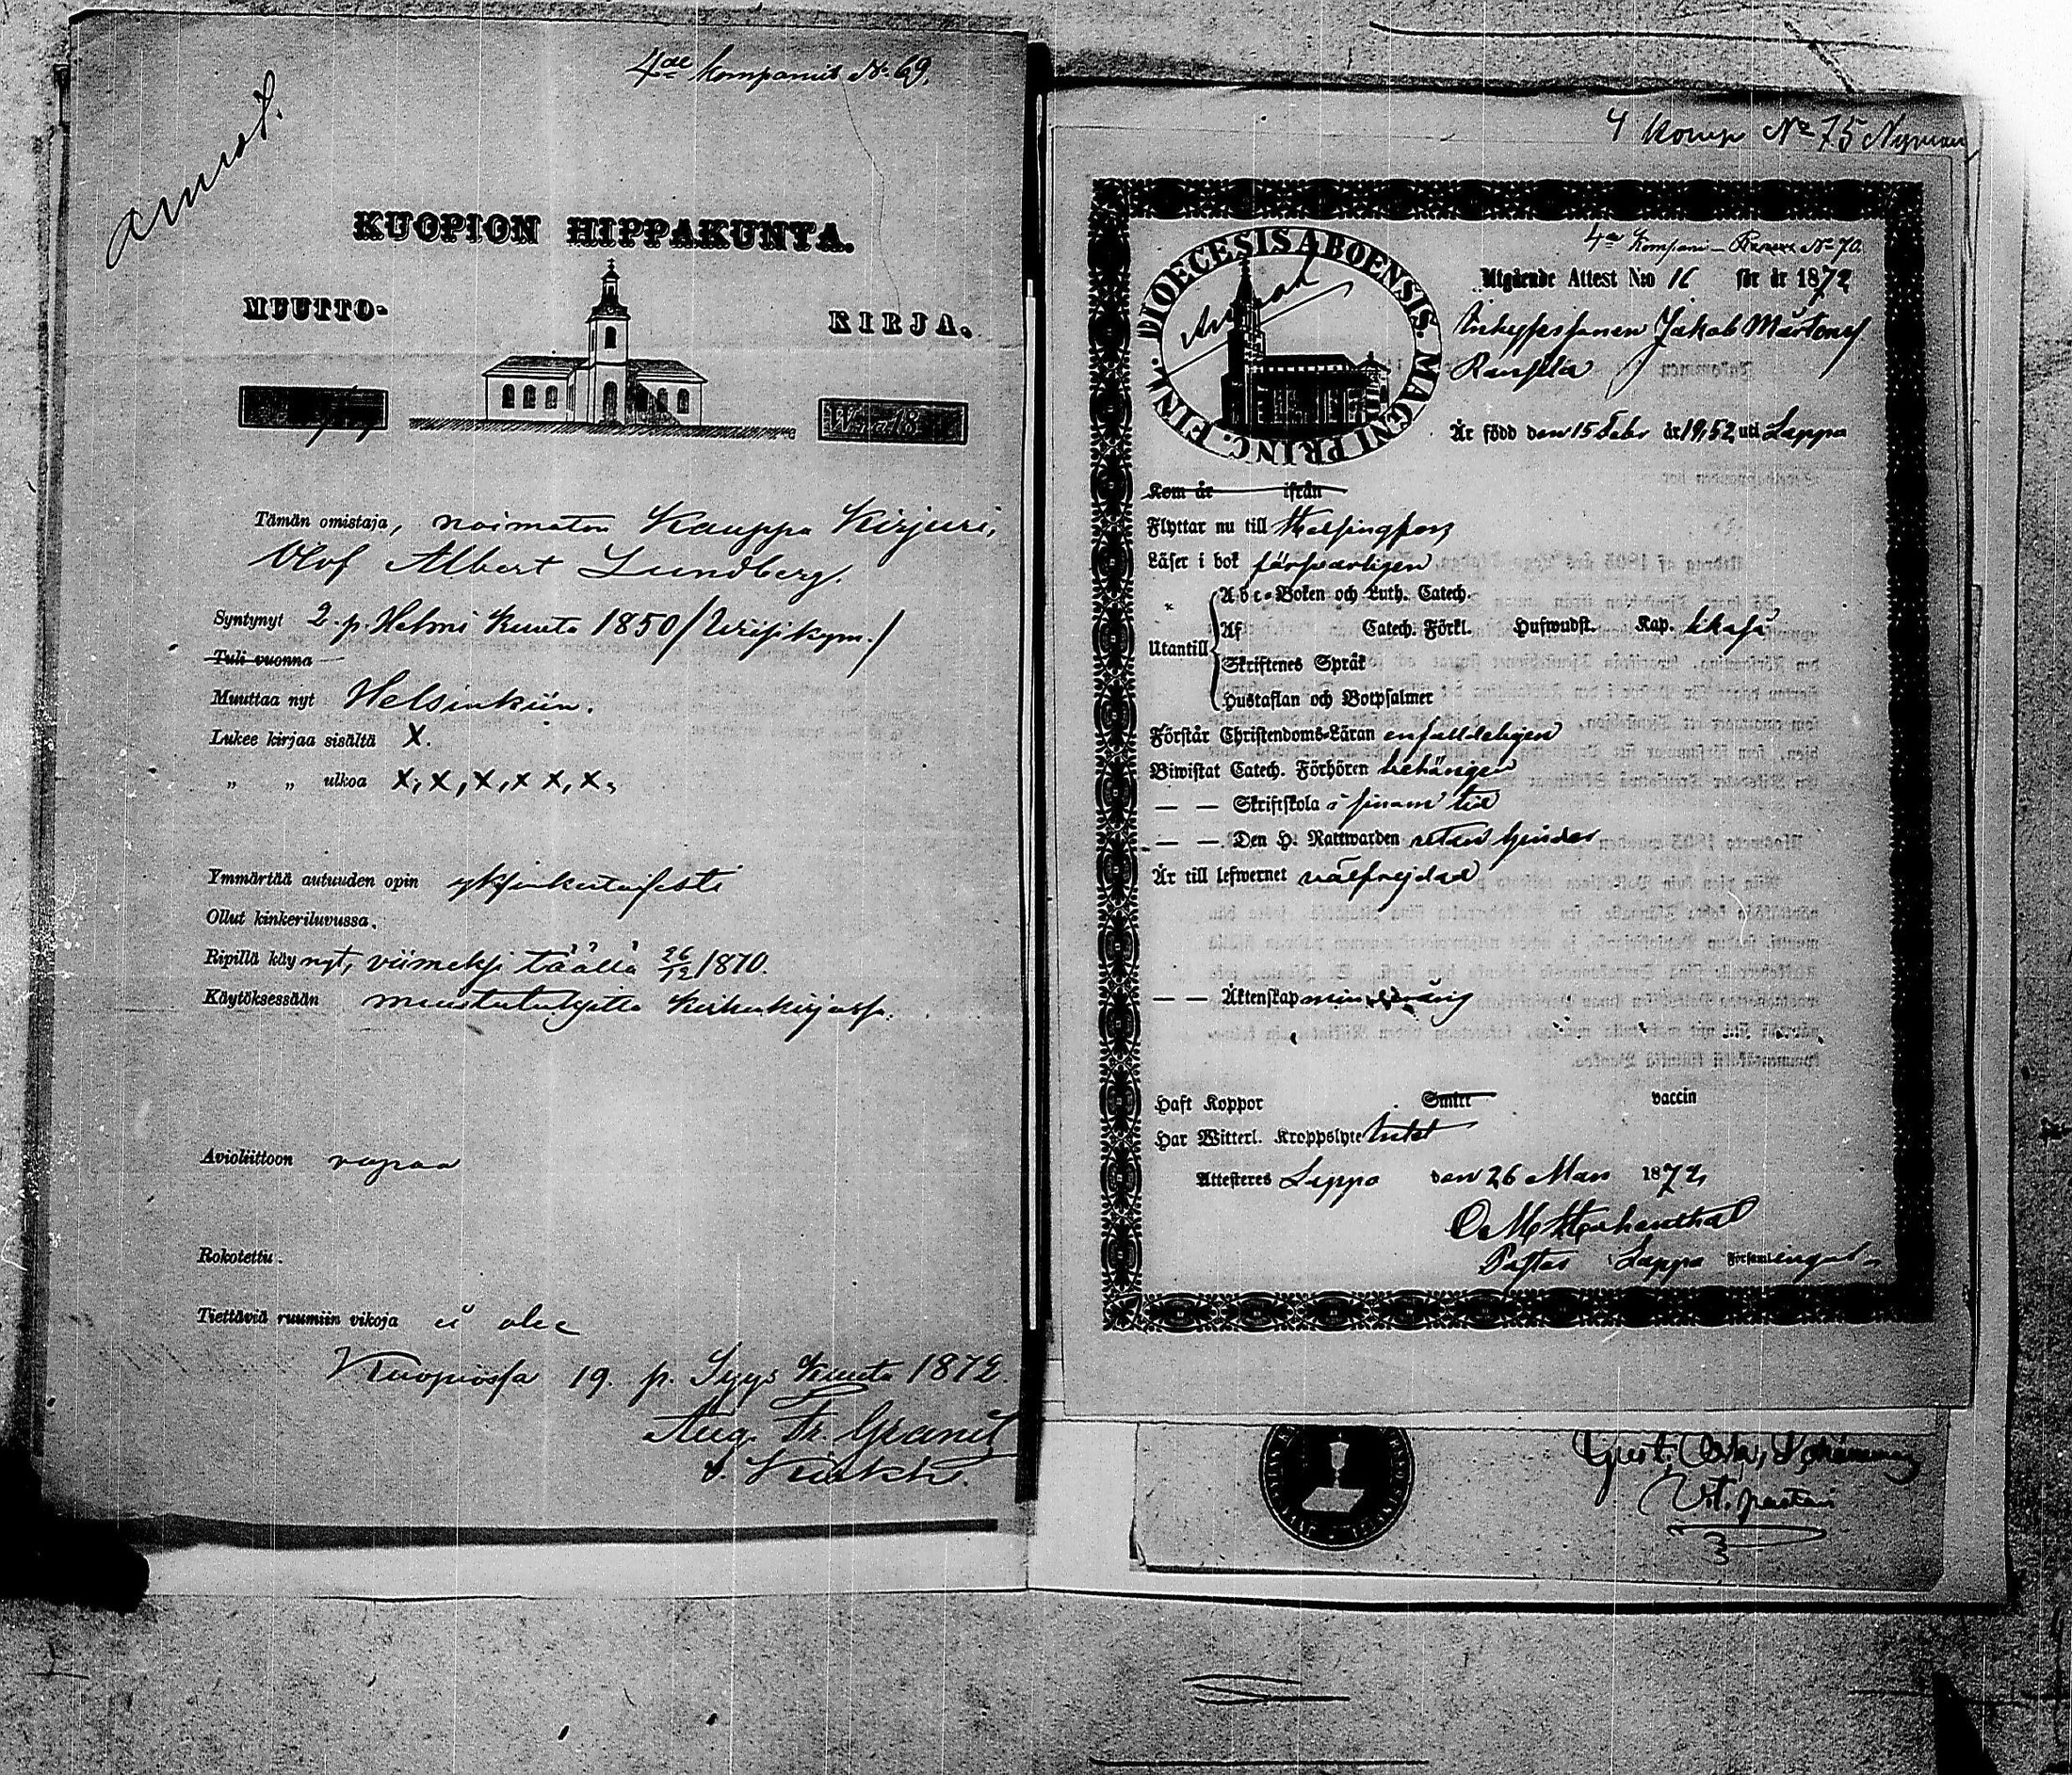 4de Kompanit No 69.
KUOPION HIPPAKUNTA.
MUUTTO-
KIRJA.
W:na 18
Tämän omistaja, naimaton Kauppa Kirjuri,
Olof Albert Lundberg.
Syntynyt 2. p. Helmi Kuuta 1850
Tuli vuonna
Muuttaa nyt Helsinkiin.
Lukee kirjaa sisältä X.
„ „ ulkoa X, X, X, X X, X,
Ymmärtää autuuden opin yksinkertaisesti
Ollut kinkeriluvussa.
Ripillä käynyt, viimeksi täällä 26/12 1870.
Käytöksessään muistutuksitta Kirkonkirjassa.
Avioliittoon vapaa
Rokotettu.
Tiettäviä ruumiin vikoja ei ole
Kuopiossa 19. p. Syys Kuuta 1872.
Aug. Fr. Granit
4 Komp No 75 Nyman
4de Kompani No 70.
DIOECESIS ABOENSIS. MAGNI PRINC. FINL.
Utgående Attest N:o 16 för år 1872
Jakob Mårtens
Är född den 15 Febr år 1852 uti Lappo
Kom år ifrån
Flyttar nu till Helsingfors
Läser i bok försvarligen
Utantill
A b c-Boken och Luth. Catech.
Af Catech. Förkl. Hufwudst. Kap. likaså
Skriftenes Språk
Hustaflan och Botpsalmer
Förstår Christendoms-Läran enfaldeligen
Biwistat Catech. Förhören behörigen
— — Skriftskola i sinom tid
— — Den H. Nattwarden utan hinder
Är till lefwernet välfrejdad
— — Äktenskap minderårig
Haft Koppor Smitt vaccin
Har Witterl. Kroppslyte intet
Attesteres Lappo den 26 Mars 1872
Pastor i Lappo Församlingar
V.t. pastor